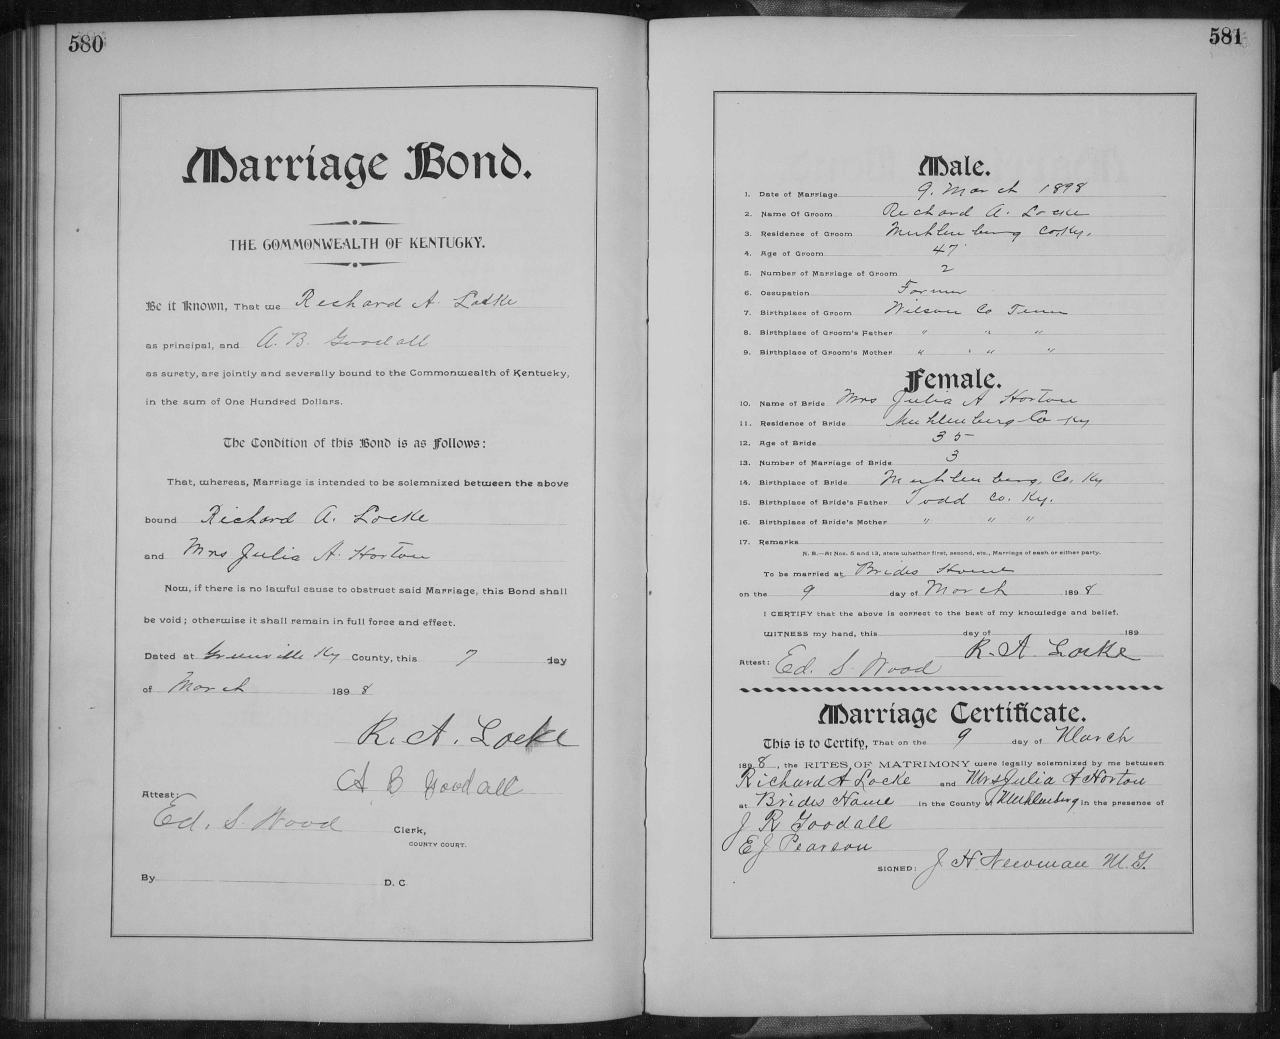 580
Marriage Bond.
THE COMMONWEALTH OF KENTUCKY.
Be it Known, That we Richard A. Locke
as principal, and A. B. Goodall
as surety, are jointly and severally bound to the Commonwealth of Kentucky,
in the sum of One Hundred Dollars.
The Condition of this Bond is as Follows:
That, whereas, Marriage is intended to be solemnized between the above
bound Richard A. Locke
and Mrs Julia A. Horton
Now, if there is no lawful cause to obstruct said Marriage, this Bond shall
be void; otherwise it shall remain in full force and effect.
Dated at Greenville Ky County, this 7 day
of March 1898
R. A. Locke
A B Goodall
Attest:
Ed. S. Wood Clerk,
COUNTY COURT.
By D. C
581
Male.
1. Date of Marriage 9. March 1898
2. Name Of Groom Richard A. Locke
3. Residence of Groom Muhlenburg Co Ky.
4. Age of Groom 47
5. Number of Marriage of Groom 2
6. Occupation Farmer
7. Birthplace of Groom Wilson Co Tenn
8. Birthplace of Groom's Father " " "
9. Birthplace of Groom's Mother " " "
Female.
10. Name of Bride Mrs Julia A Horton
11. Residence of Bride Muhlenburg Co Ky
12. Age of Bride 35
13. Number of Marriage of Bride 3
14. Birthplace of Bride Muhlenburg Co. Ky
15. Birthplace of Bride's Father Todd Co. Ky.
16. Birthplace of Bride's Mother " " "
17. Remarks
N. B.—At Nos. 5 and 13, state whether first, second, etc., Marriage of each or either party.
To be married at Brides Home
on the 9 day of March 1898
I CERTIFY that the above is correct to the best of my knowledge and belief.
WITNESS my hand, this day of 189
R. A Locke
Attest: Ed. S. Wood
Marriage Certificate.
This is to Certify, That on the 9 day of March
1898, the RITES OF MATRIMONY were legally solemnized by me between
Richard A Locke and Mrs Julia A Horton
at Brides Home in the County of Muhlenberg in the presence of
J R Goodall
E J Pearson
SIGNED: J H Newman M. G.